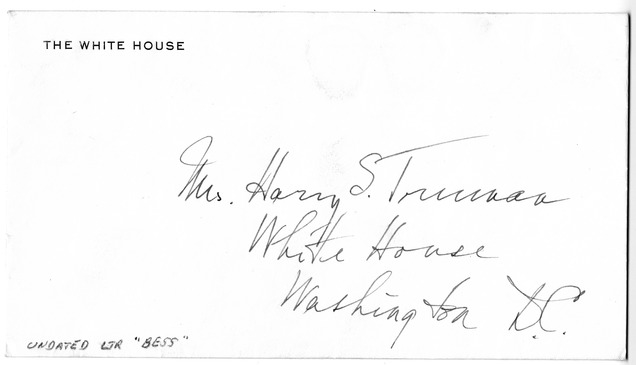 THE WHITE HOUSE
Mrs. Harry S. Truman
White House
Washington D.C.
UNDATED LTR "BESS"